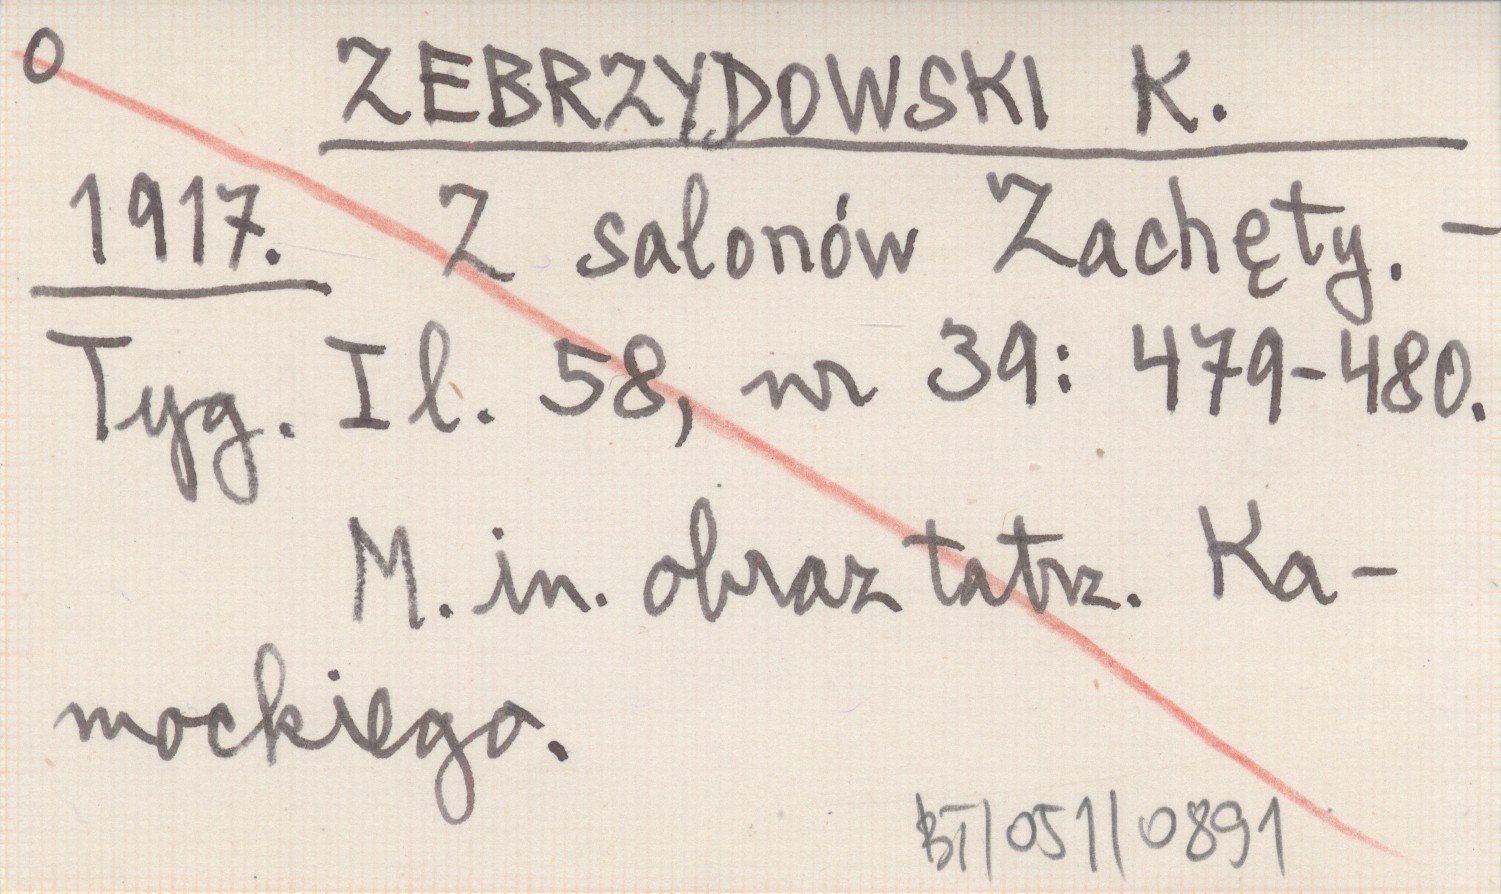 O
ZEBRZYDOWSKI K.
1917. Z salonów Zachęty. –
Tyg. Il. 58, nr 39: 479-480.
M. in. obraz tatrz. Ka-
mockiego.
BT/051/0891